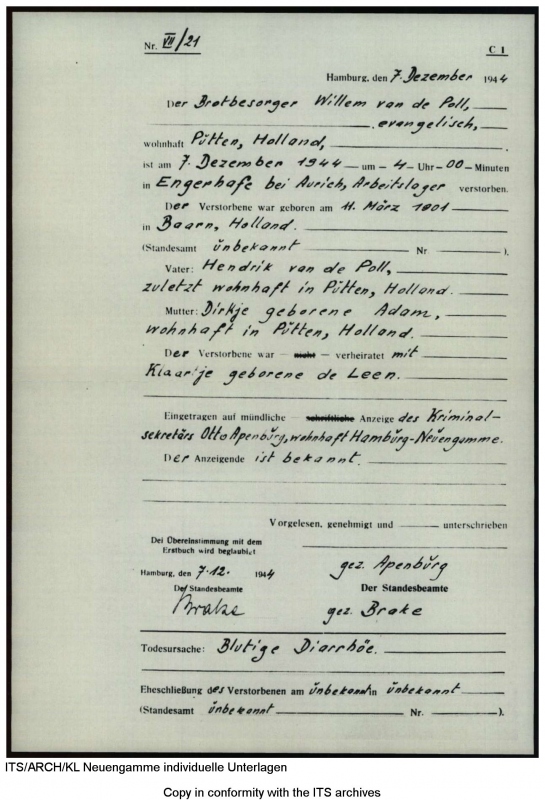 Nr. VII/21
C 1
Hamburg, den 7. Dezember 1944
Der Brotbesorger Willem van de Poll,
evangelisch,
wohnhaft Pŭtten, Holland,
ist am 7. Dezember 1944 — um - 4 - Uhr - 00 - Minuten
in Engerhafe bei Aurich, Arbeitslager verstorben.
Der Verstorbene war geboren am 11. März 1901
in Baarn, Holland.
(Standesamt ŭnbekannt Nr ).
Vater: Hendrik van de Poll,
zŭletzt wohnhaft in Pŭtten, Holland.
Mutter: Dirkje geborene Adam,
wohnhaft in Pŭtten, Holland.
Der Verstorbene war — nicht — verheiratet mit
Klaartje geborene de Leen.
Eingetragen auf mündliche — schriftliche Anzeige des Kriminal-
sekretärs Otto Apenbŭrg, wohnhaft Hambŭrg-Neŭengamme.
Der Anzeigende ist bekannt.
Vorgelesen, genehmigt und unterschrieben
Die Übereinstimmung mit dem
Erstbuch wird beglaubigt
gez. Apenbŭrg
Hamburg, den 7.12. 1944
Der Standesbeamte
Der Standesbeamte
Brake
gez. Brake
Todesursache: Blŭtige Diarrhöe.
Eheschließung des Verstorbenen am ŭnbekannt in ŭnbekannt
(Standesamt ŭnbekannt Nr. ).
ITS/ARCH/KL Neuengamme individuelle Unterlagen
Copy in conformity with the ITS archives